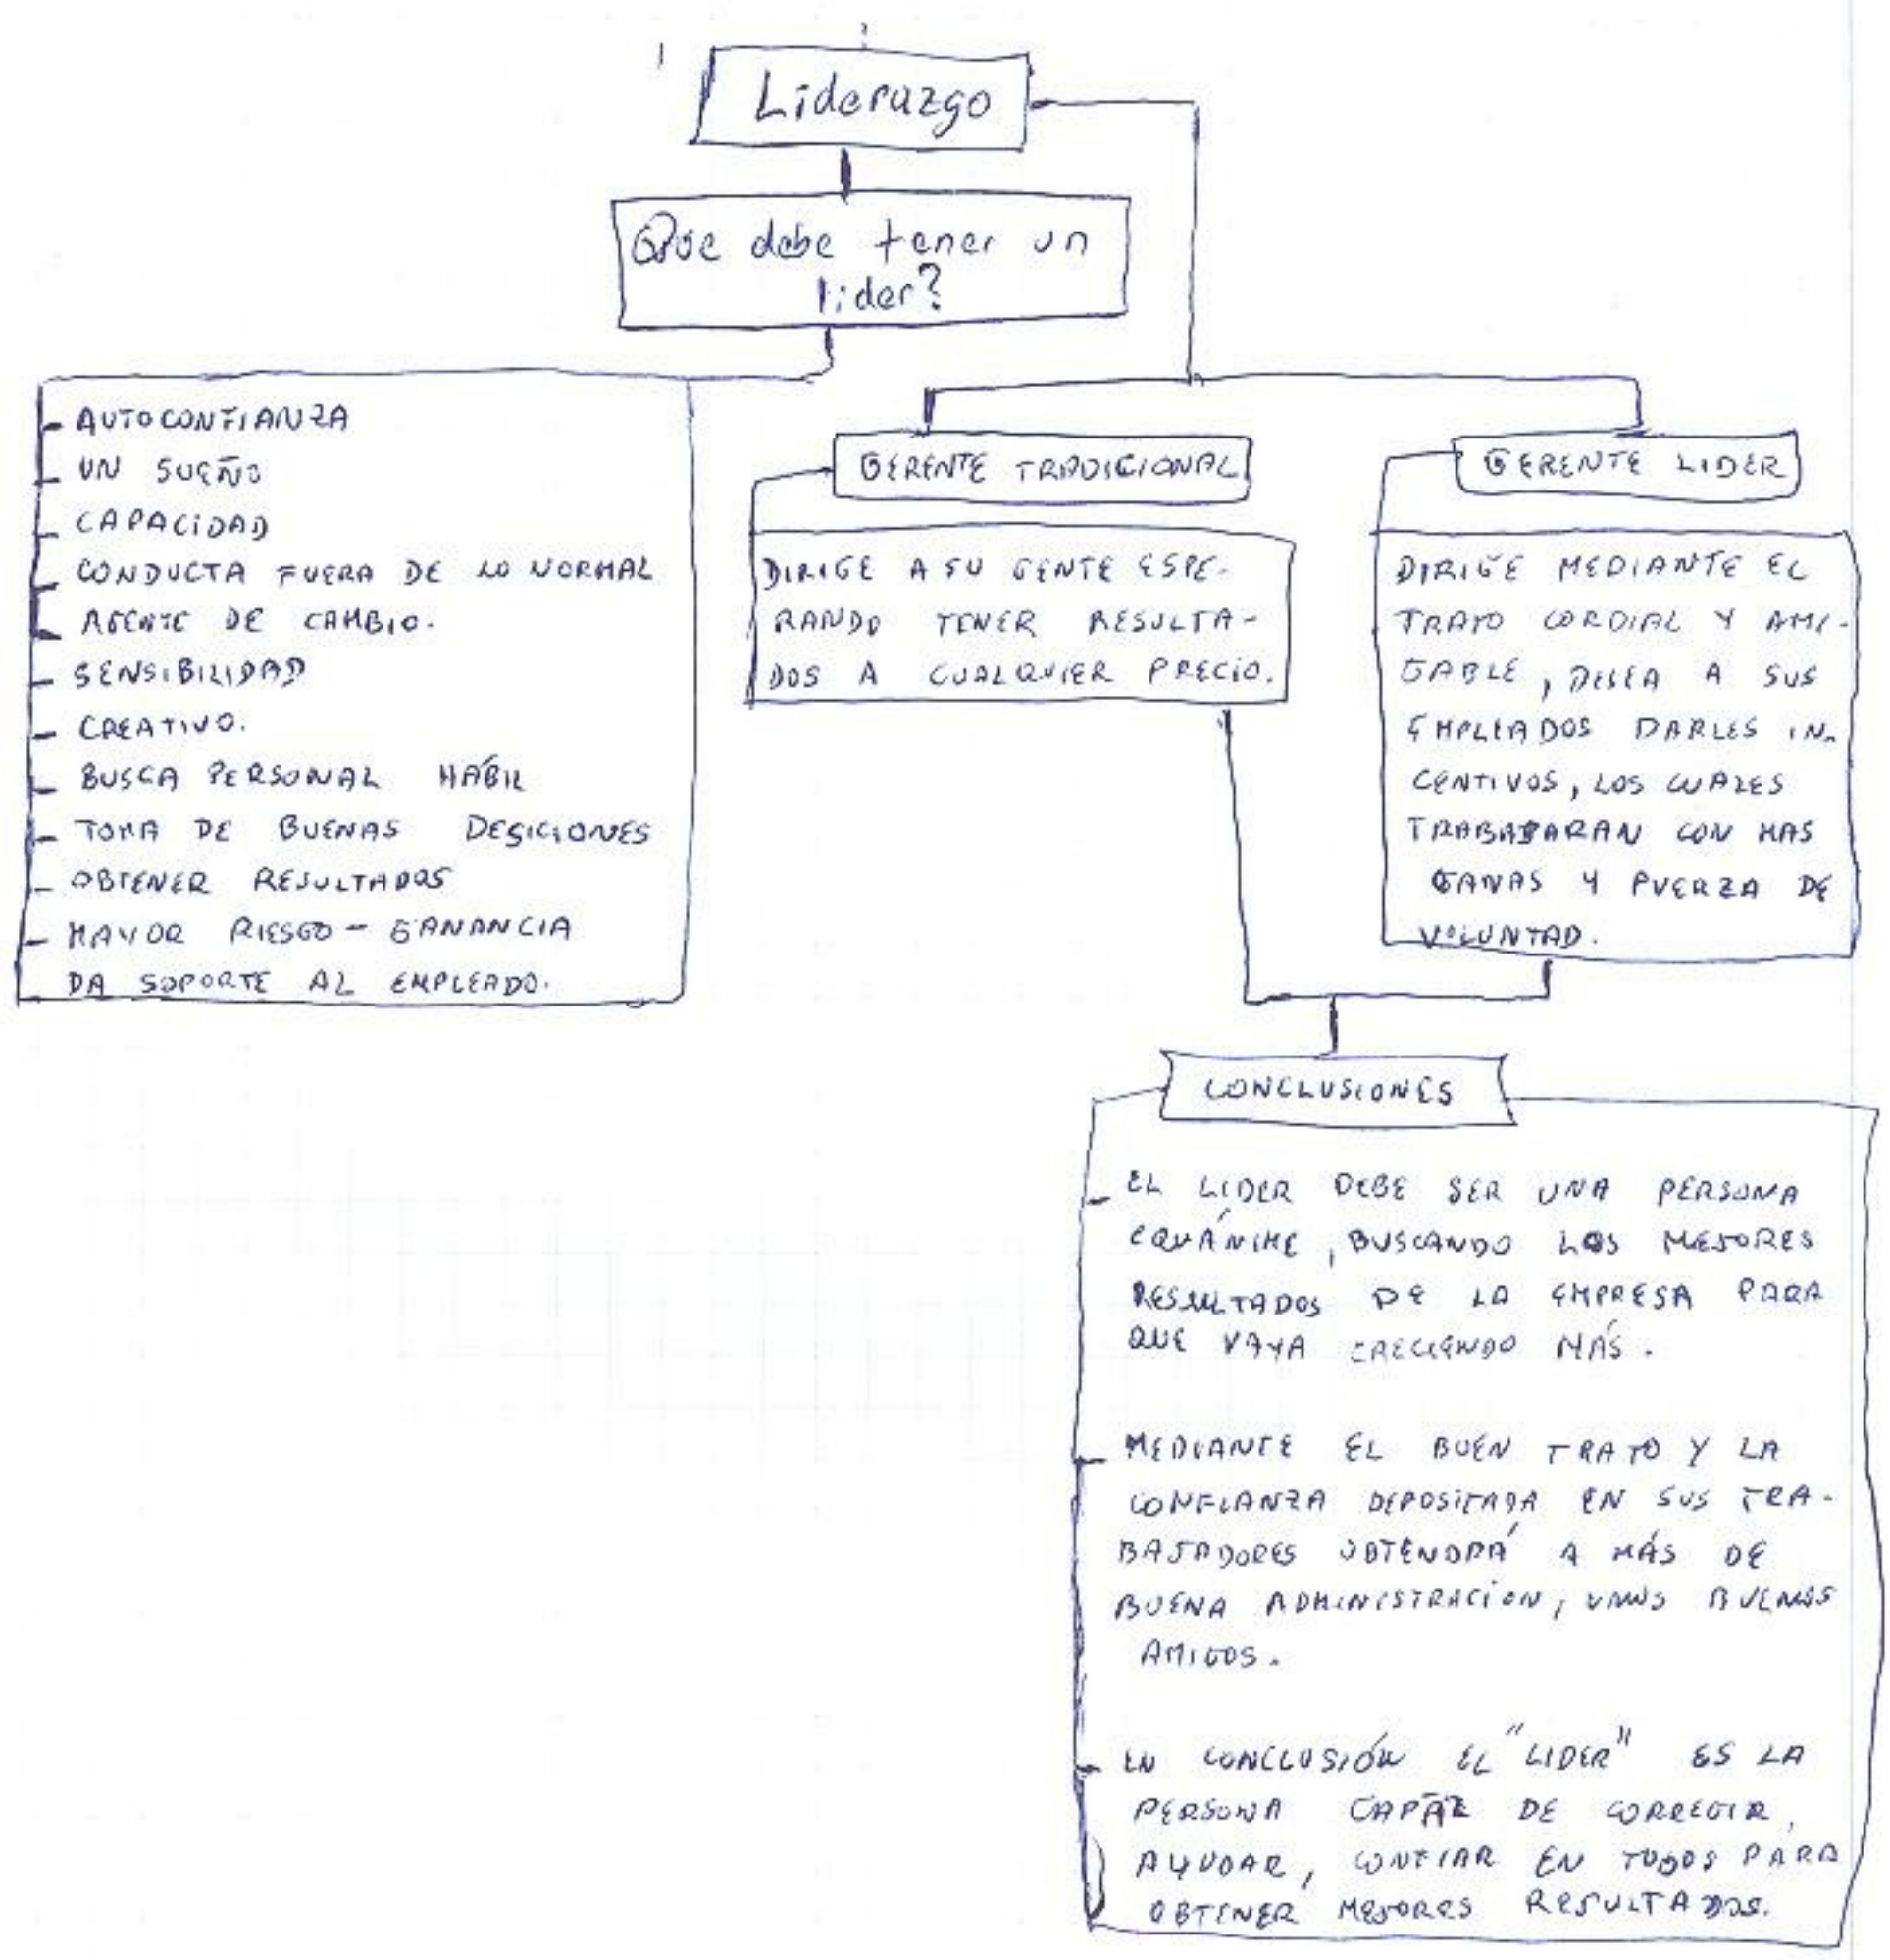 Liderazgo
Que debe tener un
lider?
- AUTOCONFIANZA
- UN SUEÑO
- CAPACIDAD
- CONDUCTA FUERA DE LO NORMAL
- AGENTE DE CAMBIO.
- SENSIBILIDAD
- CREATIVO.
- BUSCA PERSONAL HÁBIL
- TOMA DE BUENAS DESICIONES
- OBTENER RESULTADOS
- MAYOR RIESGO - GANANCIA
DA SOPORTE AL EMPLEADO.
GERENTE TRADICIONAL
DIRIGE A SU GENTE ESPE-
RANDO TENER RESULTA-
DOS A CUALQUIER PRECIO.
GERENTE LIDER
DIRIGE MEDIANTE EL
TRATO CORDIAL Y AMI-
GABLE, DESEA A SUS
EMPLEADOS DARLES IN-
CENTIVOS, LOS CUALES
TRABAJARAN CON MAS
GANAS Y FUERZA DE
VOLUNTAD.
CONCLUSIONES
- EL LIDER DEBE SER UNA PERSONA
ECUÁNIME, BUSCANDO LOS MEJORES
RESULTADOS DE LA EMPRESA PARA
QUE VAYA CRECIENDO MÁS.
- MEDIANTE EL BUEN TRATO Y LA
CONFIANZA DEPOSITADA EN SUS TRA-
BAJADORES OBTENDRÁ A MÁS DE
BUENA ADMINISTRACIÓN, UNOS BUENOS
AMIGOS.
- EN CONCLUSIÓN EL "LIDER" ES LA
PERSONA CAPÁZ DE CORREGIR,
AYUDAR, CONFIAR EN TODOS PARA
OBTENER MEJORES RESULTADOS.